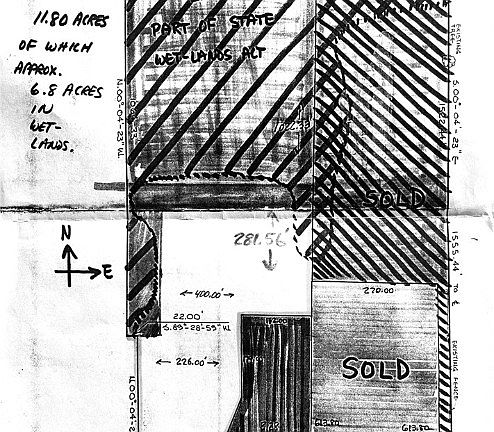 11.80 ACRES
OF WHICH
APPROX.
6.8 ACRES
IN
WET-
LANDS.
PART OF STATE
WET-LANDS ALT
N.00°-04'-23"W.
S.00°-04'-23"E.
EXISTING
SOLD
281.56'
N
E
400.00'
22.00'
S.89°-28'-55"W.
226.00'
270.00
1555.44' TO ℄
EXISTING FENCE
SOLD
613.80
613.80